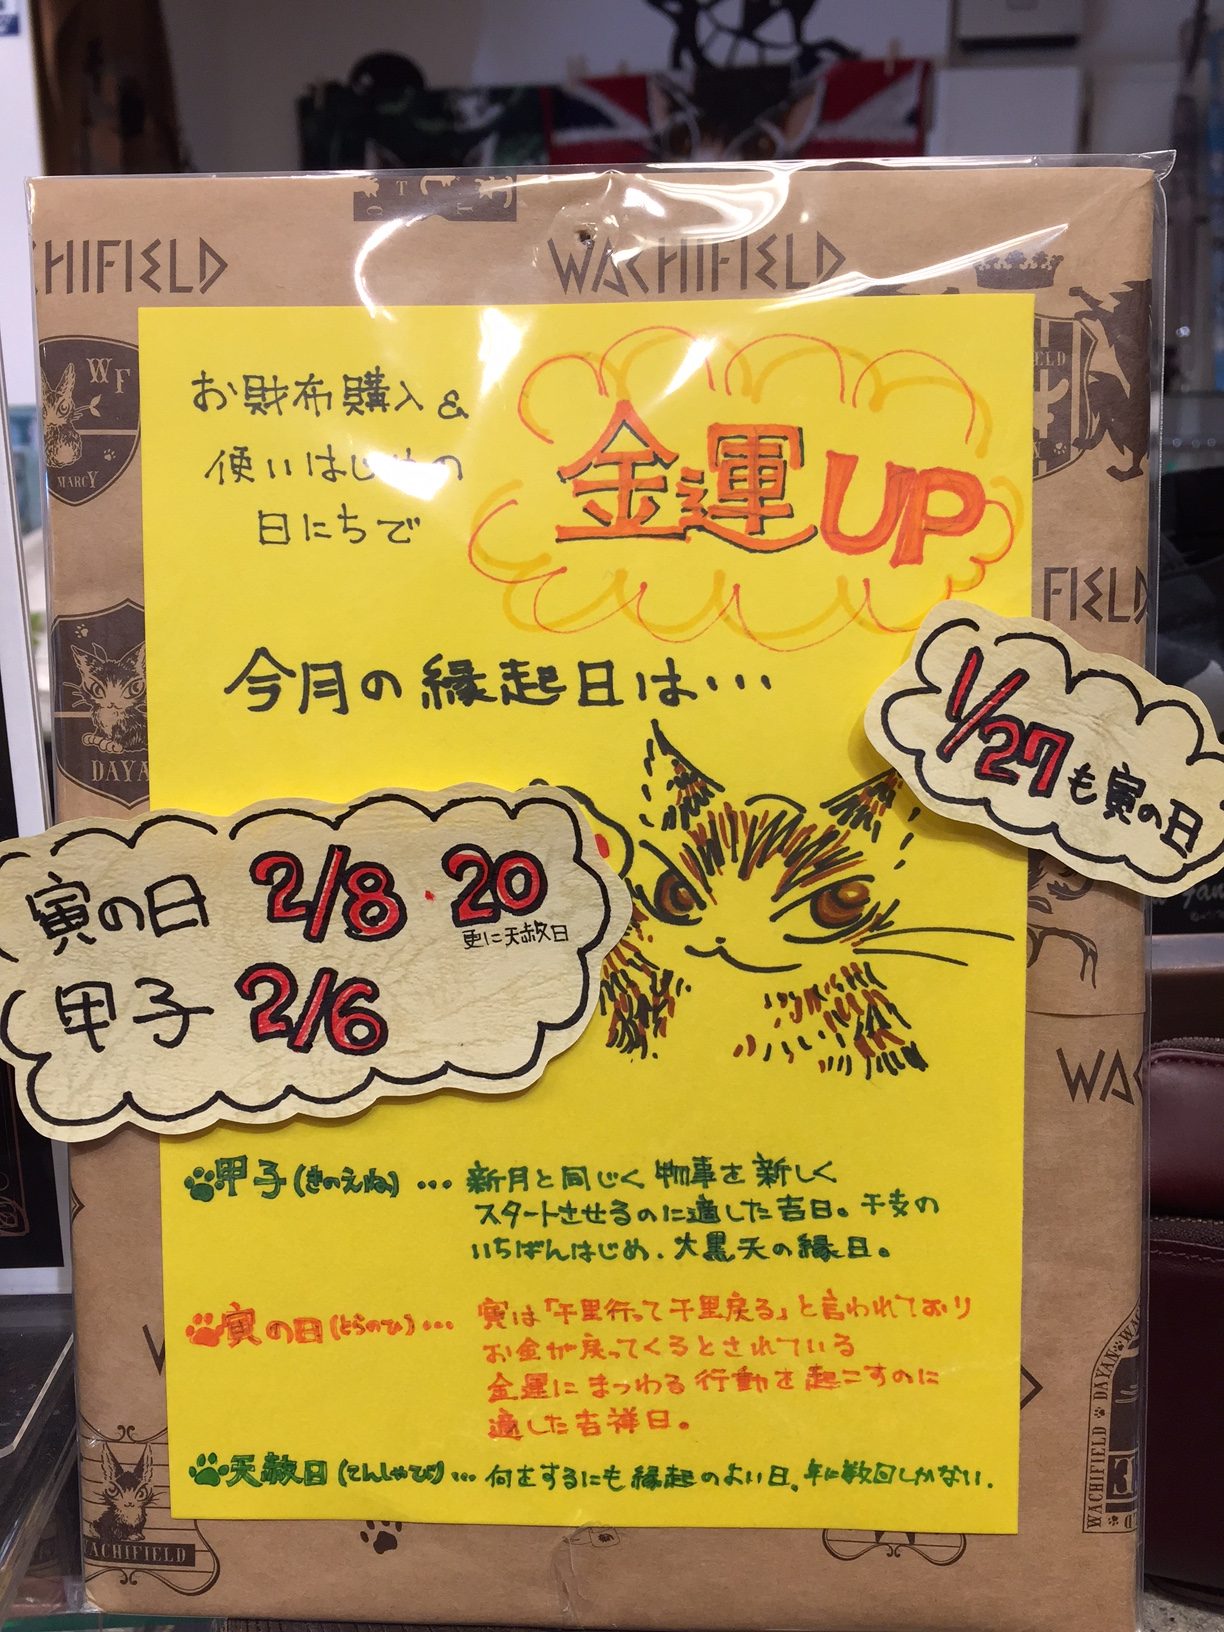 WACHIFIELD
WACHIFIELD
WF
MARCY
お財布購入&
使いはじめの
日にちで
金運UP
FIELD
今月の縁起日は…
1/27も寅の日
DAYA
寅の日 2/8・20
更に天赦日
甲子 2/6
WAC
甲子(きのえね)…新月と同じく物事を新しく
スタートさせるのに適した吉日。干支の
いちばんはじめ、大黒天の縁日。
寅の日(とらのひ)…寅は「千里行って千里戻る」と言われており
お金が戻ってくるとされている
金運にまつわる行動を起こすのに
適した吉祥日。
天赦日(てんしゃび)…何をするにも縁起のよい日。年に数回しかない.
WACHIFIELD
WACHIFIELD DAYAN